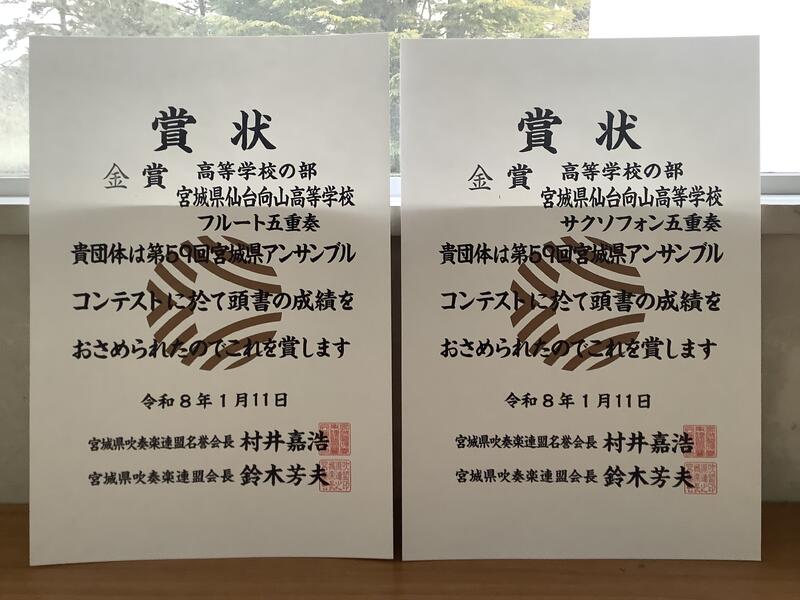 賞状
金賞 高等学校の部
宮城県仙台向山高等学校
フルート五重奏
貴団体は第59回宮城県アンサンブル
コンテストに於て頭書の成績を
おさめられたのでこれを賞します
令和8年1月11日
宮城県吹奏楽連盟名誉会長 村井嘉浩
宮城県吹奏楽連盟会長 鈴木芳夫
賞状
金賞 高等学校の部
宮城県仙台向山高等学校
サクソフォン五重奏
貴団体は第59回宮城県アンサンブル
コンテストに於て頭書の成績を
おさめられたのでこれを賞します
令和8年1月11日
宮城県吹奏楽連盟名誉会長 村井嘉浩
宮城県吹奏楽連盟会長 鈴木芳夫